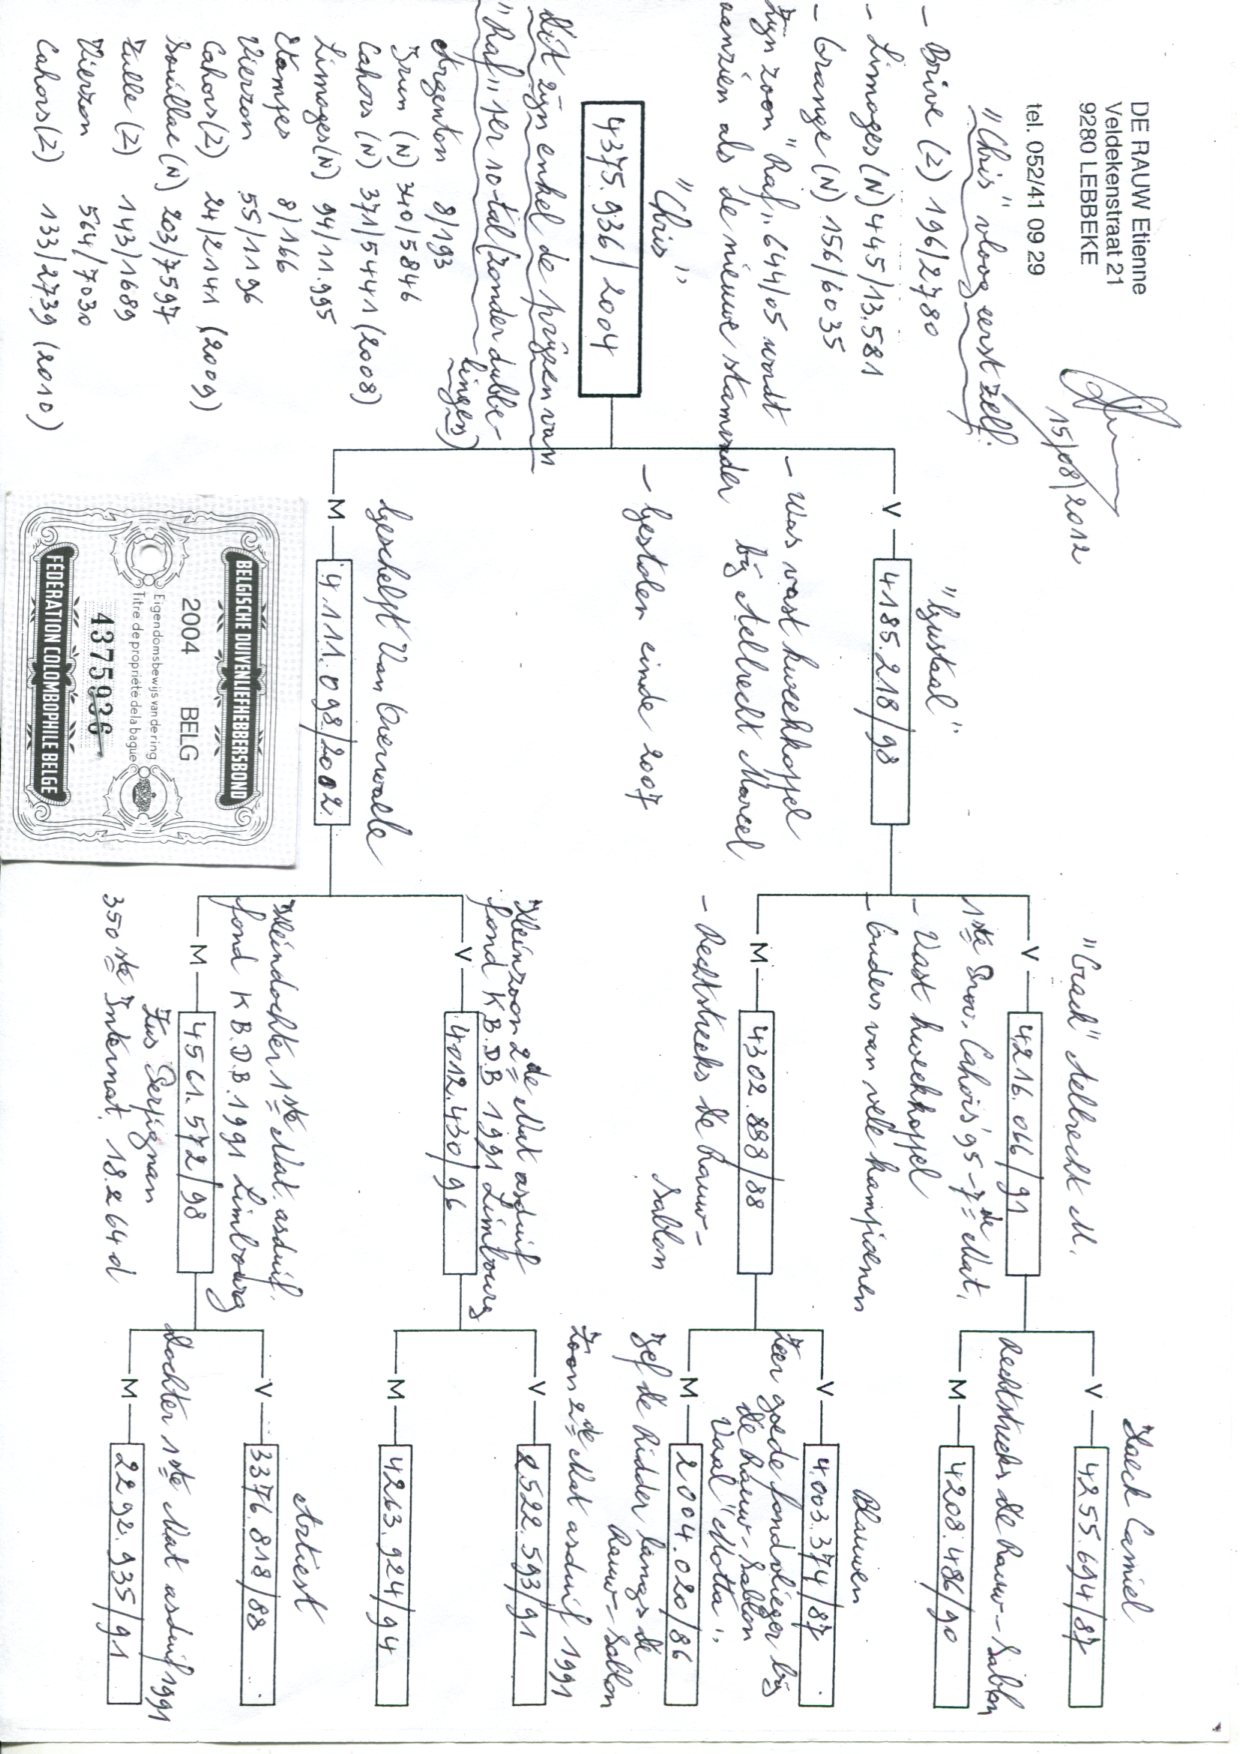 DE RAUW Etienne
Veldekenstraat 21
9280 LEBBEKE
tel. 052/41 09 29
15/08/2012
"Chris" vloog eerst zelf.
- Brive (2) 196/2780
- Limoges (N) 445/13.581
- Orange (N) 156/6035
Zijn zoon "Raf" 644/05 wordt
aanzien als de nieuwe stamvader
"Chris"
4375.936/2004
Dit zijn enkel de prijzen van
"Raf" per 10-tal (zonder dubbe-
lingen)
Argenton 8/193
Brive (N) 340/5846
Cahors (N) 371/5441 (2008)
Limoges (N) 94/11.995
Etampes 8/166
Vierzon 55/1196
Cahors (2) 24/2141 (2009)
Souillac (N) 203/7597
Tulle (2) 143/1689
Vierzon 564/7030
Cahors (2) 133/2739 (2010)
V
"Gustaal"
4185.218/98
- Was vast kweekkoppel
bij Aelbrecht Marcel
- Gestolen einde 2007
M
Geschelpt Van Overwalle
4.111.098/2002
BELGISCHE DUIVENLIEFHEBBERSBOND
2004 BELG
Eigendomsbewijs van de ring
Titre de propriété de la bague
4375936
FEDERATION COLOMBOPHILE BELGE
V
"Crack" Aelbrecht M.
4216.066/91
1ste Prov. Cahors '95 - 7de Nat.
- Vast kweekkoppel
- Ouders van vele kampioenen
M
4302.898/88
- Rechtstreeks De Rauw-
Sablon
V
Kleinzoon 2de Nat asduif
fond K.B.D.B 1991 Limbourg
4012.430/96
M
Kleindochter 1ste Nat. asduif
fond K.B.D.B. 1991 Limbourg
4561.572/98
Zus Perpignan
350ste Internat. 18.264 d
V
Camiel
4255.694/87
M
Rechtstreeks de Rauw-Sablon
4208.486/90
V
Blauwen
4003.374/87
Zeer goede fondvlieger bij
de Rauw-Sablon
Vaal "Motta"
M
2004.020/86
Jef de Ridder langs de
Rauw-Sablon
V
Zoon 2de Nat asduif 1991
2522.593/91
M
4263.924/94
V
Artiest
3376.818/88
M
Dochter 1ste Nat asduif 1991
2292.935/91